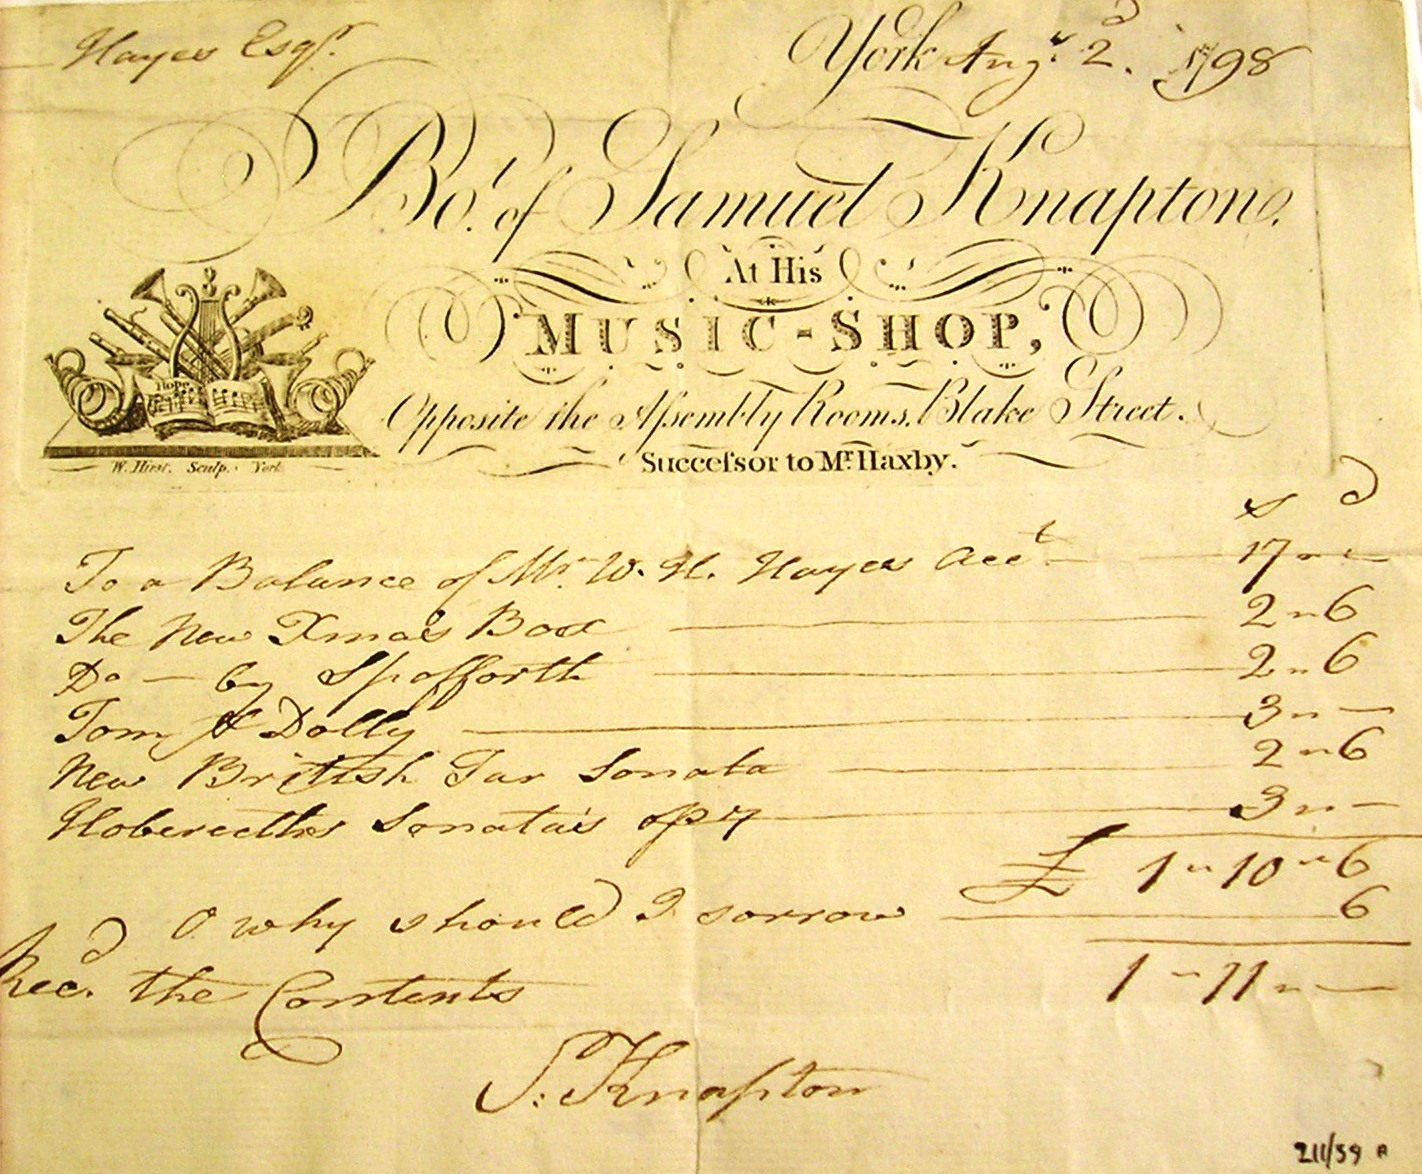 Hayes Esqr. York Augt. 2d. 1798
Bot. of Samuel Knapton.
At His
MUSIC-SHOP,
Opposite the Aſsembly Rooms, Blake Street.
Succeſsor to Mr. Haxby.
Hope
W. Hirst. Sculp. York
s d
To a Balance of Mr. W. H. Hayes Acct 17 " "
The New Xmas Box 2 " 6
Do - by Spofforth 2 " 6
Tom & Dolly 3 " -
New British Tar Sonata 2 " 6
Sonata's op 7 3 " -
£ 1 " 10 " 6
O why should I sorrow 6
1 " 11 " -
Recd. the Contents
S. Knapton
211/59 a